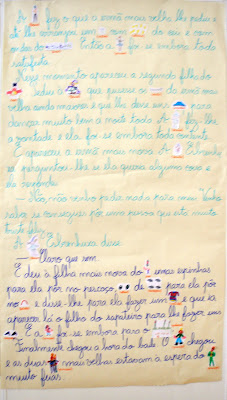 A fez o que a irmã mais velha lhe pediu e
até lhe arranjou um do seu e com
Então a foi-se embora toda
satisfeita.
Nesse momento apareceu a segunda filha do
pediu à que pusesse os da irmã mais
velha ainda maiores e que lhe desse uns para
dançar muito bem a noite toda. A fez-lhe
a vontade e ela foi-se embora toda contente.
E apareceu a irmã mais nova. A Estranha
perguntou-lhe se ela queria alguma coisa e
ela respondeu:
— Não, não venho pedir nada para mim. Venho
saber se consegues pôr uma pessoa que está muito
triste feliz.
A Estranhuca disse:
— Claro que sim.
E deu à filha mais nova do umas espinhas
para ela pôr no pescoço, de para ela pôr
no e disse-lhe para ela fazer um e que ia
aparecer lá o filho do sapateiro para lhe fazer uns
E a foi-se embora para o
Finalmente chegou a hora do baile. O chegou
e as duas mais velhas estavam à espera do
muito feias.